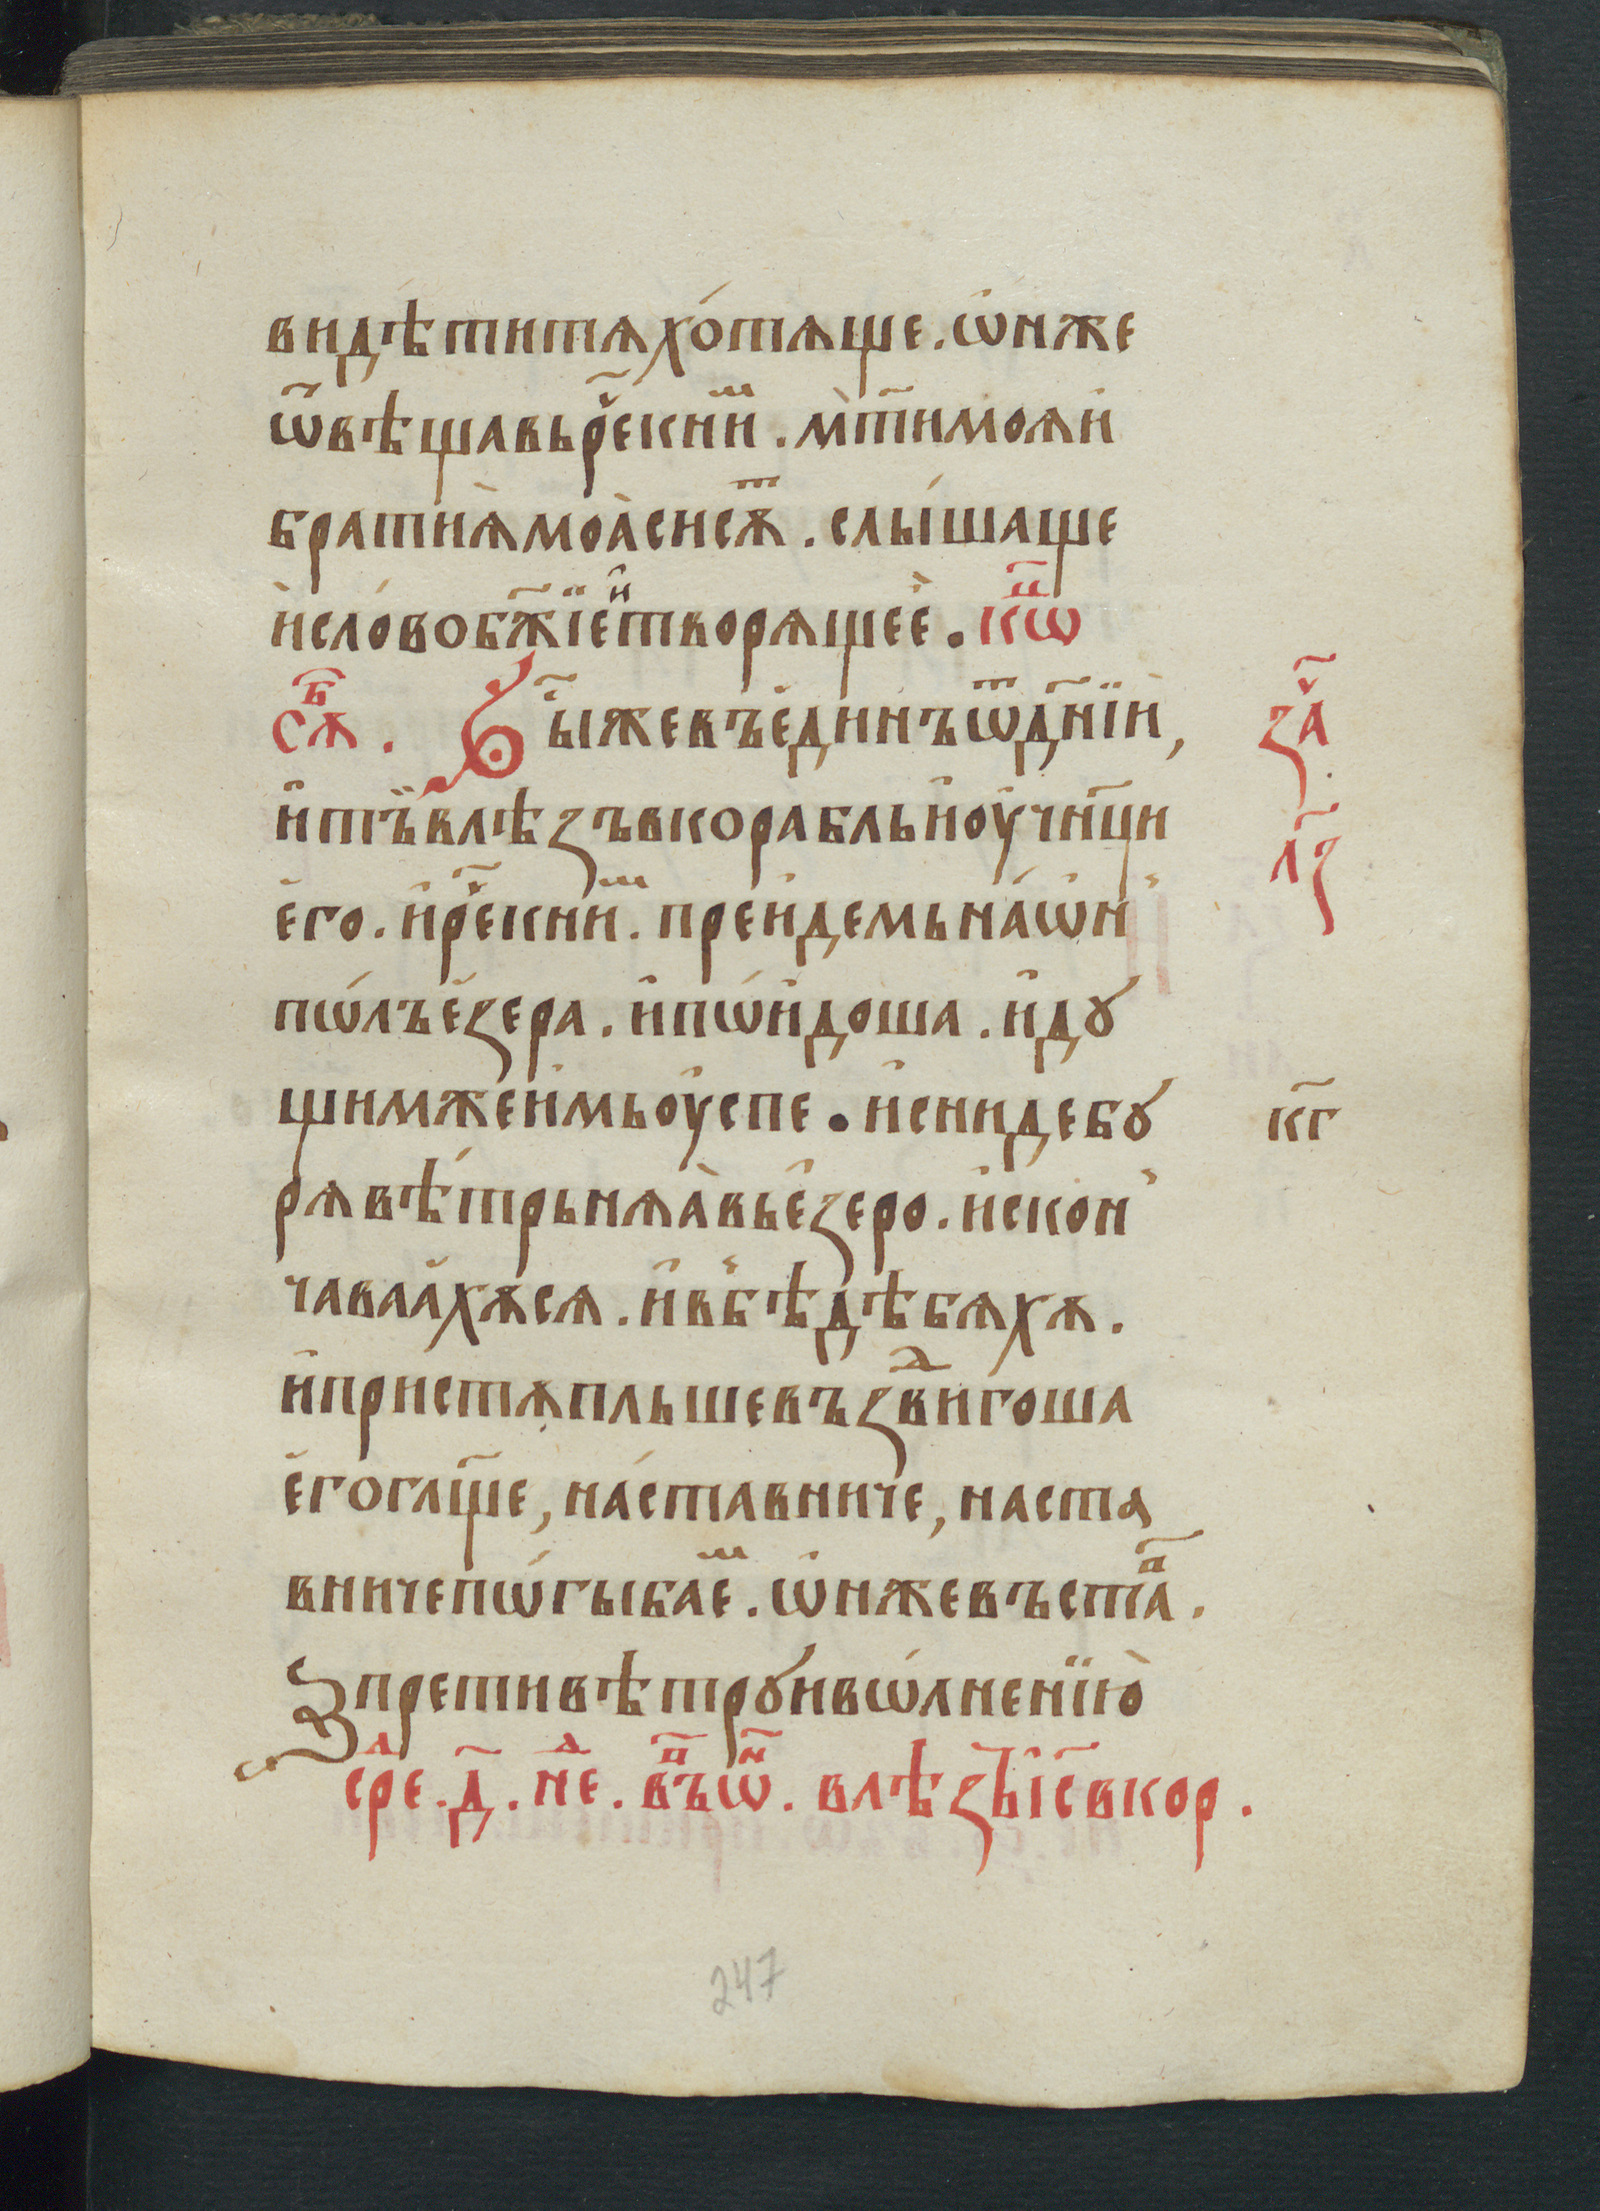 видѣти тѧ хо́тѧще . ѡ҆н же
ѿвѣщавь рⷱ҇е к ни́ⷨ . мт҃и моѧ и҆
братиѧ̀ моа̀ сѝ сѫⷮ . слы́шаще
и҆ сло́во бж҃їе иⷩ҇ творѧщеѐ . кⷪ҇ѡⷰ
сѫⷠ҇ . Быⷭ҇ же въ е҆динъ ѿ дн҃їи ,
и҆ тъ̏ влѣзъ в корабль и҆ оу҆чн҃ци
е҆го . и҆ рⷱ҇е к ниⷨ . преидемь на́ ѡ҆н
пѡ́лъ е҆зера . и҆ пѡ́идоша . идꙋ
щим же и҆мь оу҆спе . и҆ сниде бꙋ
рѧ вѣ́трьнѧа̀ вь е҆зеро . и҆ скон
чаваа҆хѫ сѧ . и҆ в бѣдѣ бѧхѫ .
и҆ пристѫпльше въꙁвиⷣгоша
е҆го гл҃ще , на́ставниче , наста
вниче пѡ́гыбаеⷨ . ѡ҆н же въстаⷡ .
Запрети вѣтрꙋ и вѡ́лнению̀
срⷣе . д҃ . нⷣе . вⷫ҇ъѡⷩ҇ . влѣзь і҆с҃ в кор .
заⷱ҇
лз҃
кг҃
247